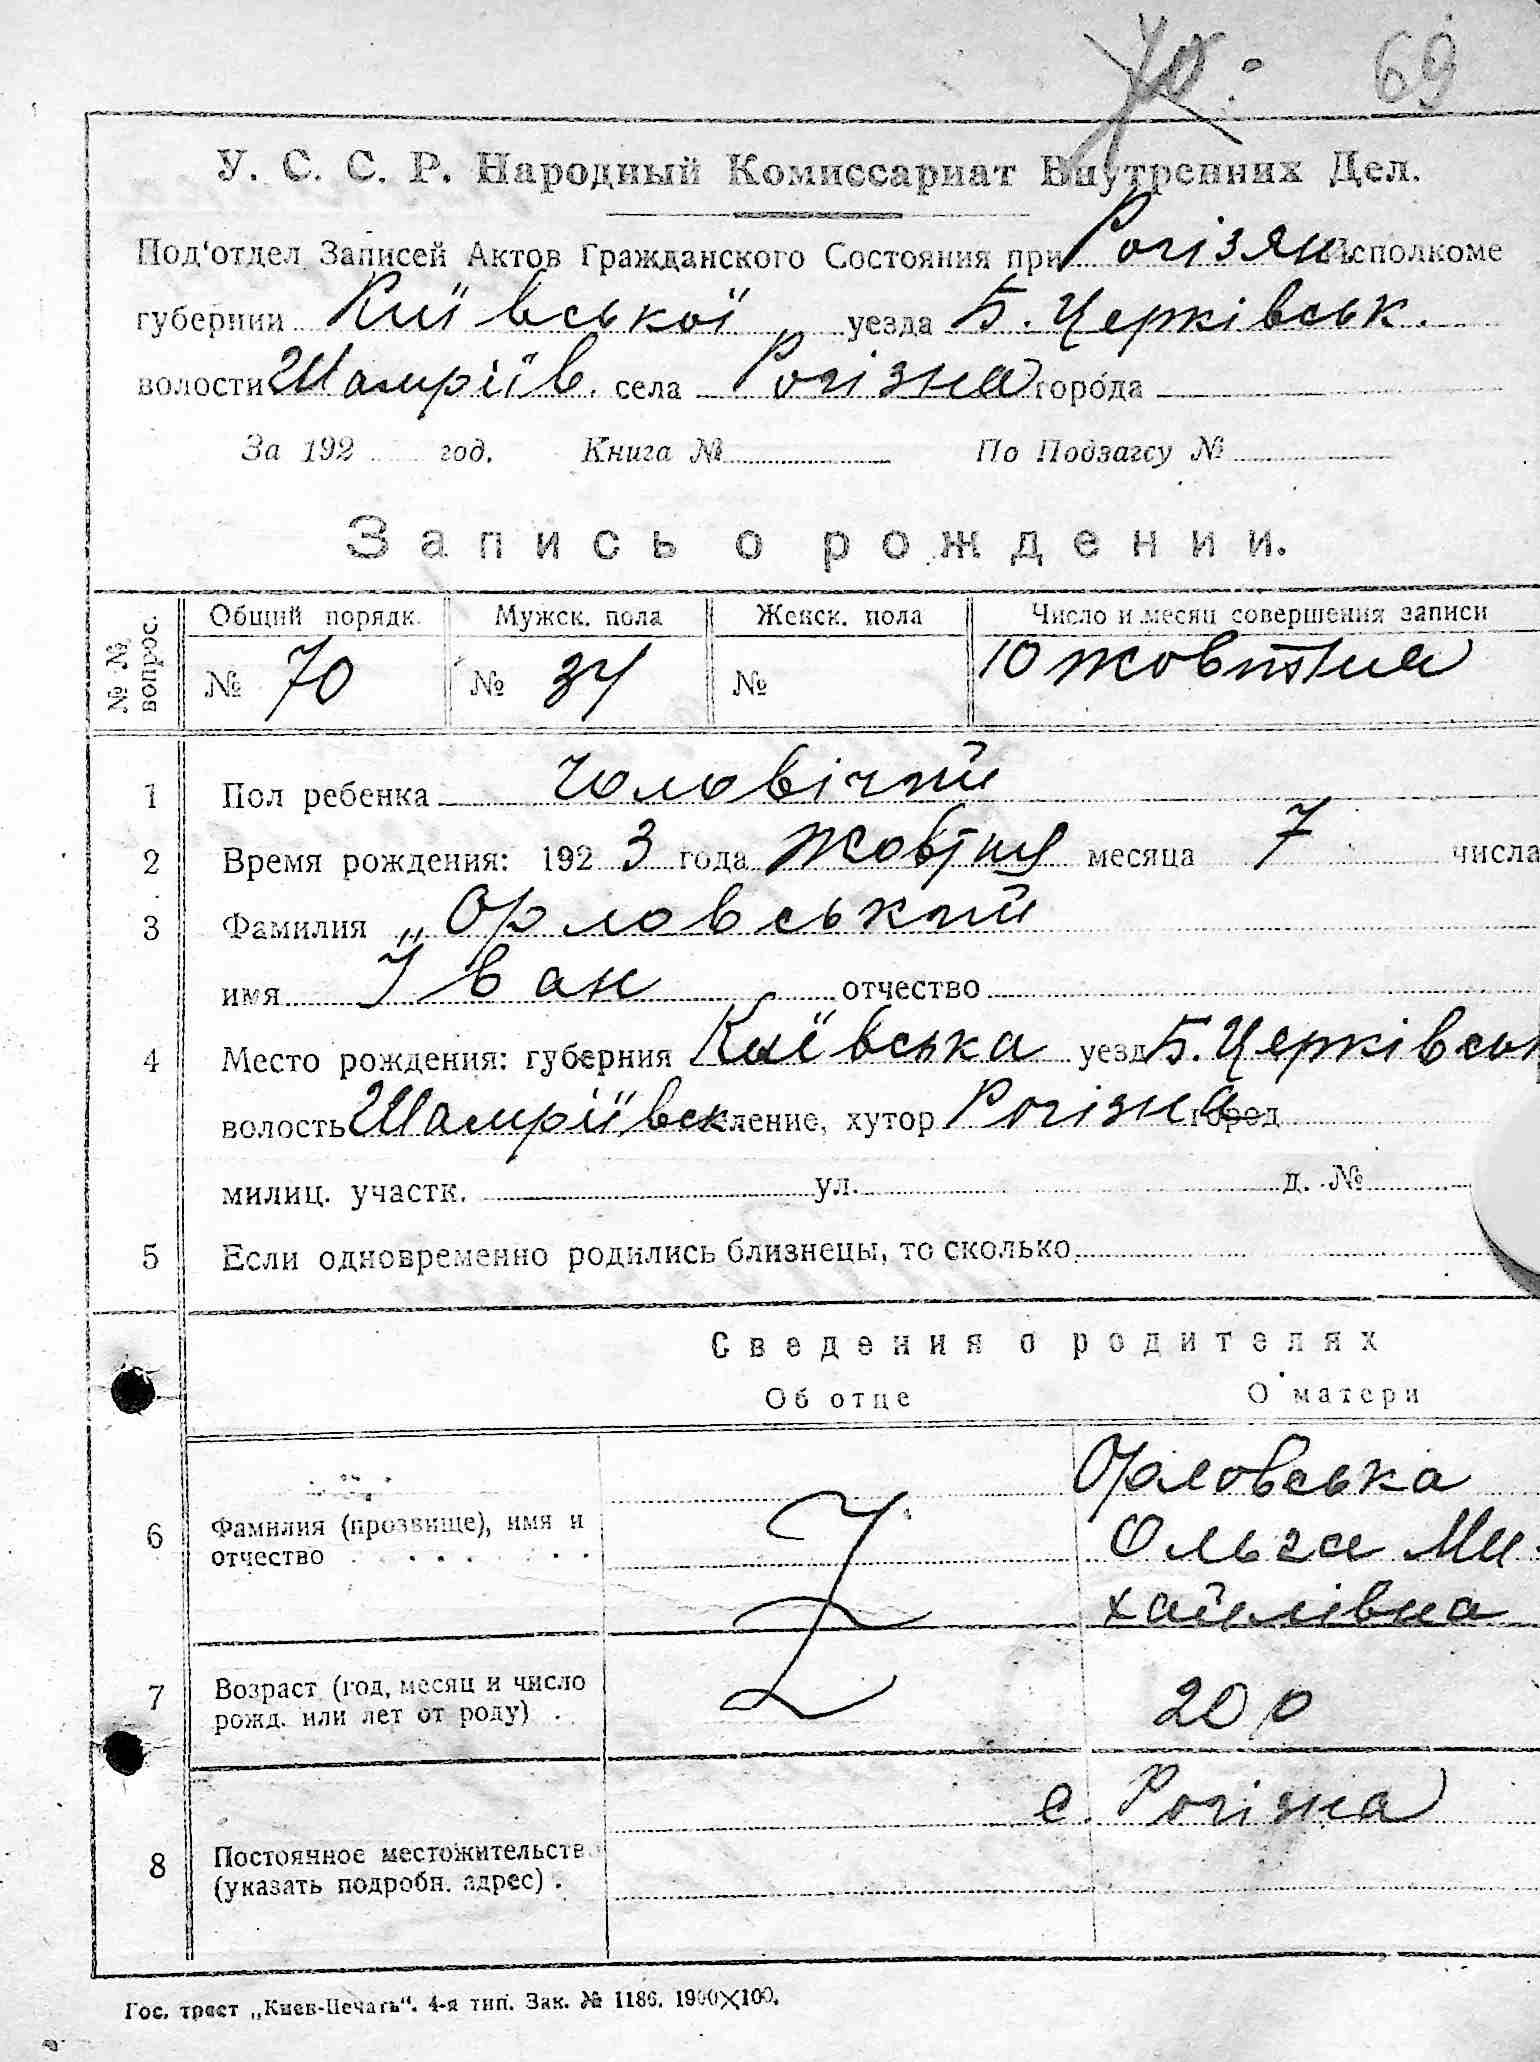 69
У. С. С. Р. Народный Комиссариат Внутренних Дел.
Под‘отдел Записей Актов Гражданского Состояния при Рогізян. Исполкоме
губернии Київської уезда Б. Черківськ.
волости Шамріїв. села Рогізна города
За 192 год. Книга № По Подзагсу №
Запись о рождении.
№ № вопрос. Общий порядк. Мужск. пола Женск. пола Число и месяц совершения записи
№ 70 № 34 № 10 жовтня
1 Пол ребенка Чоловічий
2 Время рождения: 192 3 года Жовтня месяца 7 числа
3 Фамилия „Орловський
имя Іван отчество
4 Место рождения: губерния Київська уезд Б. Черківськ
волость Шамріївск селение, хутор Рогізна город
милиц. участк. ул. д. №
5 Если одновременно родились близнецы, то сколько
Сведения о родителях
Об отце О матери
Орловська
6 Фамилия (прозвище), имя и отчество Ольга Ми-
хайлівна
7 Возраст (год, месяц и число рожд. или лет от роду) 20 р
с. Рогізна
8 Постоянное местожительство (указать подробн. адрес)
Гос. трест „Киев-Печать“. 4-я тип. Зак. № 1186. 1900×100.